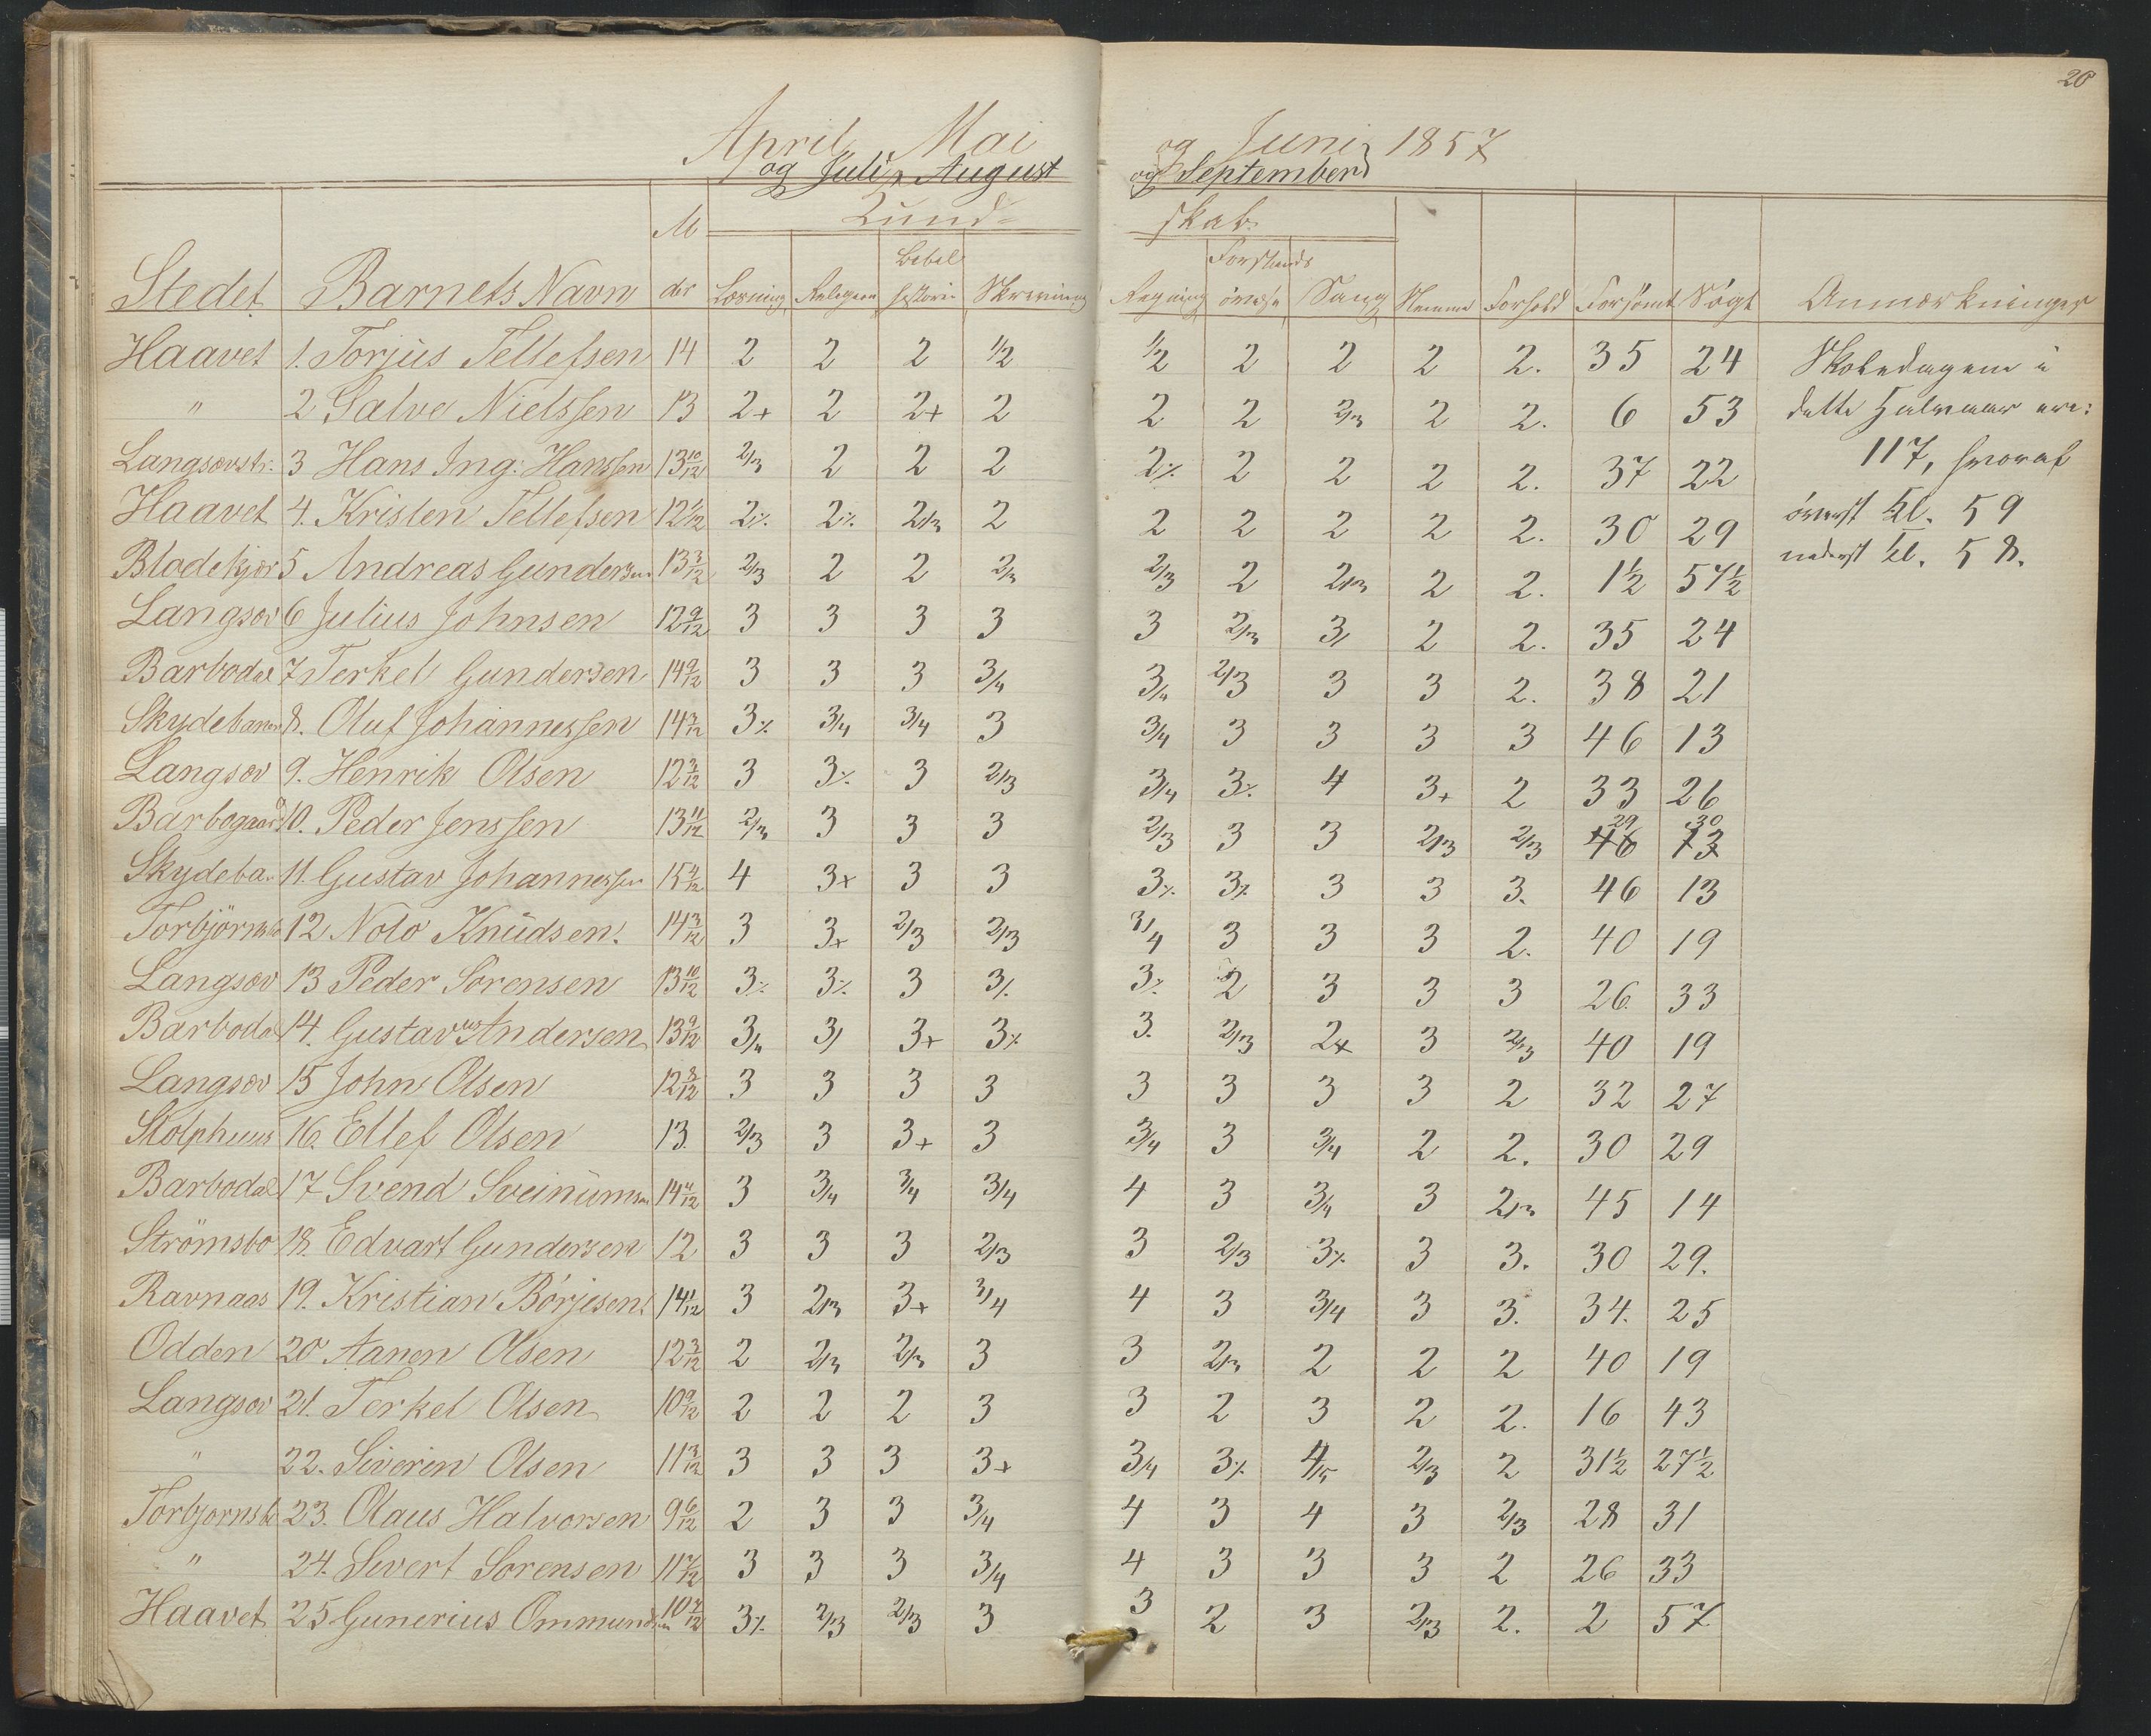 20
April, Mai og Juni 1857
og Juli, August og September
Kund- skab.
Stedet Barnets Navn Al der Læsning Religion Bibel historie Skrivning Regning Forstands øvelse Sang Nemme Forhold Forsömt Søgt Anmærkninger
Haavet 1. Torjus Tellefsen 14 2 2 2 1/2 1/2 2 2 2 2. 35 24 Skoledagene i
" 2 Salve Nielssen 13 2+ 2 2+ 2 2 2 2/3 2 2. 6 53 dette Halvaar ere:
Langsævstr. 3 Hans Ing: Hanssen 13 10/12 2/3 2 2 2 2% 2 2 2 2. 37 22 117, hvoraf
Haavet 4. Kristen Tellefsen 12 1/12 2% 2% 2/3 2 2 2 2 2 2. 30 29 øverst Kl. 59
Bladekjær 5 Andreas Gundersen 13 3/12 2/3 2 2 2/3 2/3 2 2/3 2 2. 1½ 57½ nederst kl. 58.
Langsæv 6 Julius Johnsen 12 9/12 3 3 3 3 3 2/3 3/ 2 2. 35 24
Barbodal 7 Terkel Gundersen 14 9/12 3 3 3 3/4 3/4 2/3 3 3 2. 38 21
Skydebanen 8. Oluf Johannessen 14 3/12 3% 3/4 3/4 3 3/4 3 3 3 3 46 13
Langsæv 9. Henrik Olsen 12 3/12 3 3% 3 2/3 3/4 3% 4 3+ 2 33 26
Barbogaard 10. Peder Jenssen 13 11/12 2/3 3 3 3 2/3 3 3 2/3 2/3 46 29 13 30
Skydeba. 11. Gustav Johannessen 15 4/12 4 3+ 3 3 3% 3% 3 3 3. 46 13
Torbjörnsb 12 Nolo Knudsen. 14 3/12 3 3+ 2/3 2/3 3/4 3 3 3 2. 40 19
Langsæv 13 Peder Sörensen 13 10/12 3% 3% 3 3% 3% 2 3 3 3 26. 33
Barbodal 14. Gustavus Andersen 13 9/12 3/4 3/ 3+ 3% 3. 2/3 2+ 3 2/3 40 19
Langsæv 15 John Olsen 12 8/12 3 3 3 3 3 3 3 3 2 32 27
Stolphuus 16. Ellef Olsen 13. 2/3 3 3+ 3 3/4 3 3/4 2 2. 30 29
Barbodal 17 Svend Sveinumsen 14 11/12 3 3/4 3/4 3/4 4 3 3/4 3 2/3 45 14
Strömsbo 18. Edvart Gundersen 12 3 3 3 2/3 3 2/3 3% 3 3. 30 29.
Ravnaas 19. Kristian Börjesen. 14 1/12 3 2/3 3+ 3/4 4 3 3/4 3 3. 34. 25
Odden 20 Aanen Olsen 12 3/12 2 2/3 2/3 3 3 2/3 2 2 2 40 19
Langsæv 21. Terkel Olsen 10 9/12 2 2 2 3 3 2 3 2 2. 16 43
" 22. Siverin Olsen 11 3/12 3 3 3 3+ 3/4 3% 4/5 2/3 2 31½ 27½
Torbjornsb 23. Olaus Halvorsen 9 6/12 2 3 3 3/4 4 3 4 3 2/3 28 31
" 24. Sivert Sorensen 11 7/12 3 3 3 3/4 4 3 3 3 2 26 33
Haavet 25 Gunerius Ommundsen 10 7/12 3% 2/3 2/3 3 3 2 3 2/3 2. 2 57